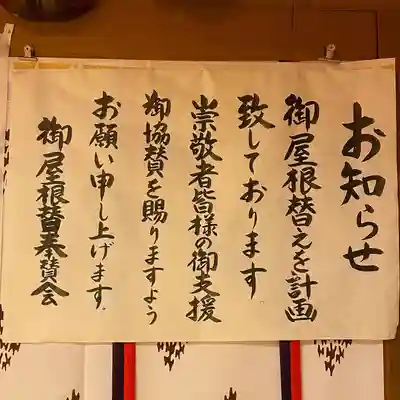 お知らせ
御屋根替えを計画
致しております
崇敬者皆様の御支援
御協賛を賜りますよう
お願い申し上げます.
御屋根替奉賛会